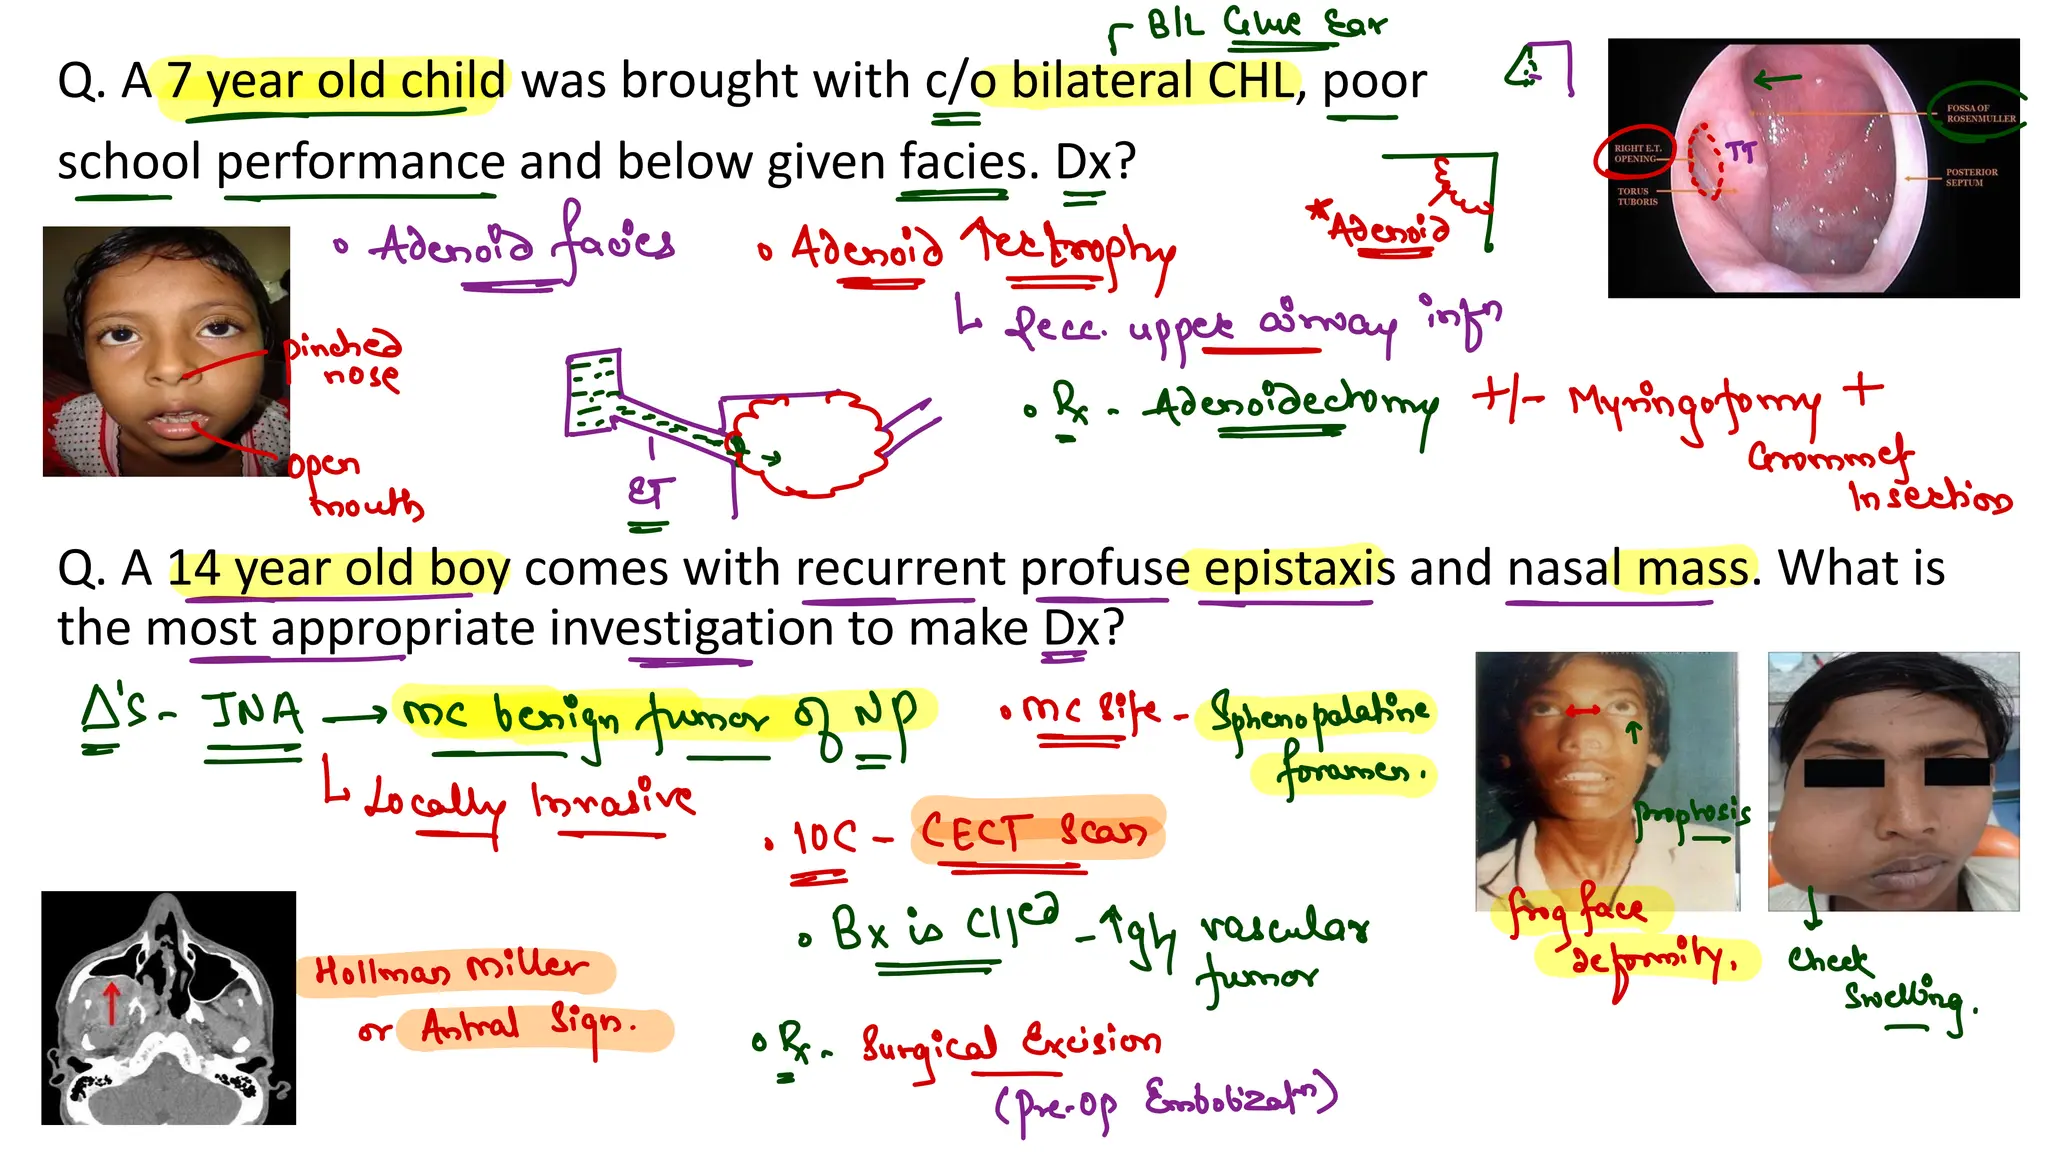 ┌ B/L Glue Ear
Q. A 7 year old child was brought with c/o bilateral CHL, poor
school performance and below given facies. Dx?
FOSSA OF
ROSENMULLER
RIGHT E.T.
OPENING
TT
POSTERIOR
SEPTUM
TORUS
TUBORIS
• Adenoid facies
• Adenoid ↑ertrophy
*Adenoid
↳ Recc. upper airway infn
pinched
nose
open
mouth
ET
• Rx - Adenoidectomy +/- Myringotomy +
Grommet
Insertion
Q. A 14 year old boy comes with recurrent profuse epistaxis and nasal mass. What is
the most appropriate investigation to make Dx?
Δ's - JNA → MC benign tumor of NP
↳ Locally Invasive
• MC Site - Sphenopalatine
foramen.
• IOC - CECT Scan
• Bx is C/Ied - ↑gly vascular
tumor
• Rx - Surgical Excision
(Pre-op Embolizatn)
Hollman Miller
or Antral Sign.
proptosis
frog face
deformity.
Cheek
Swelling.